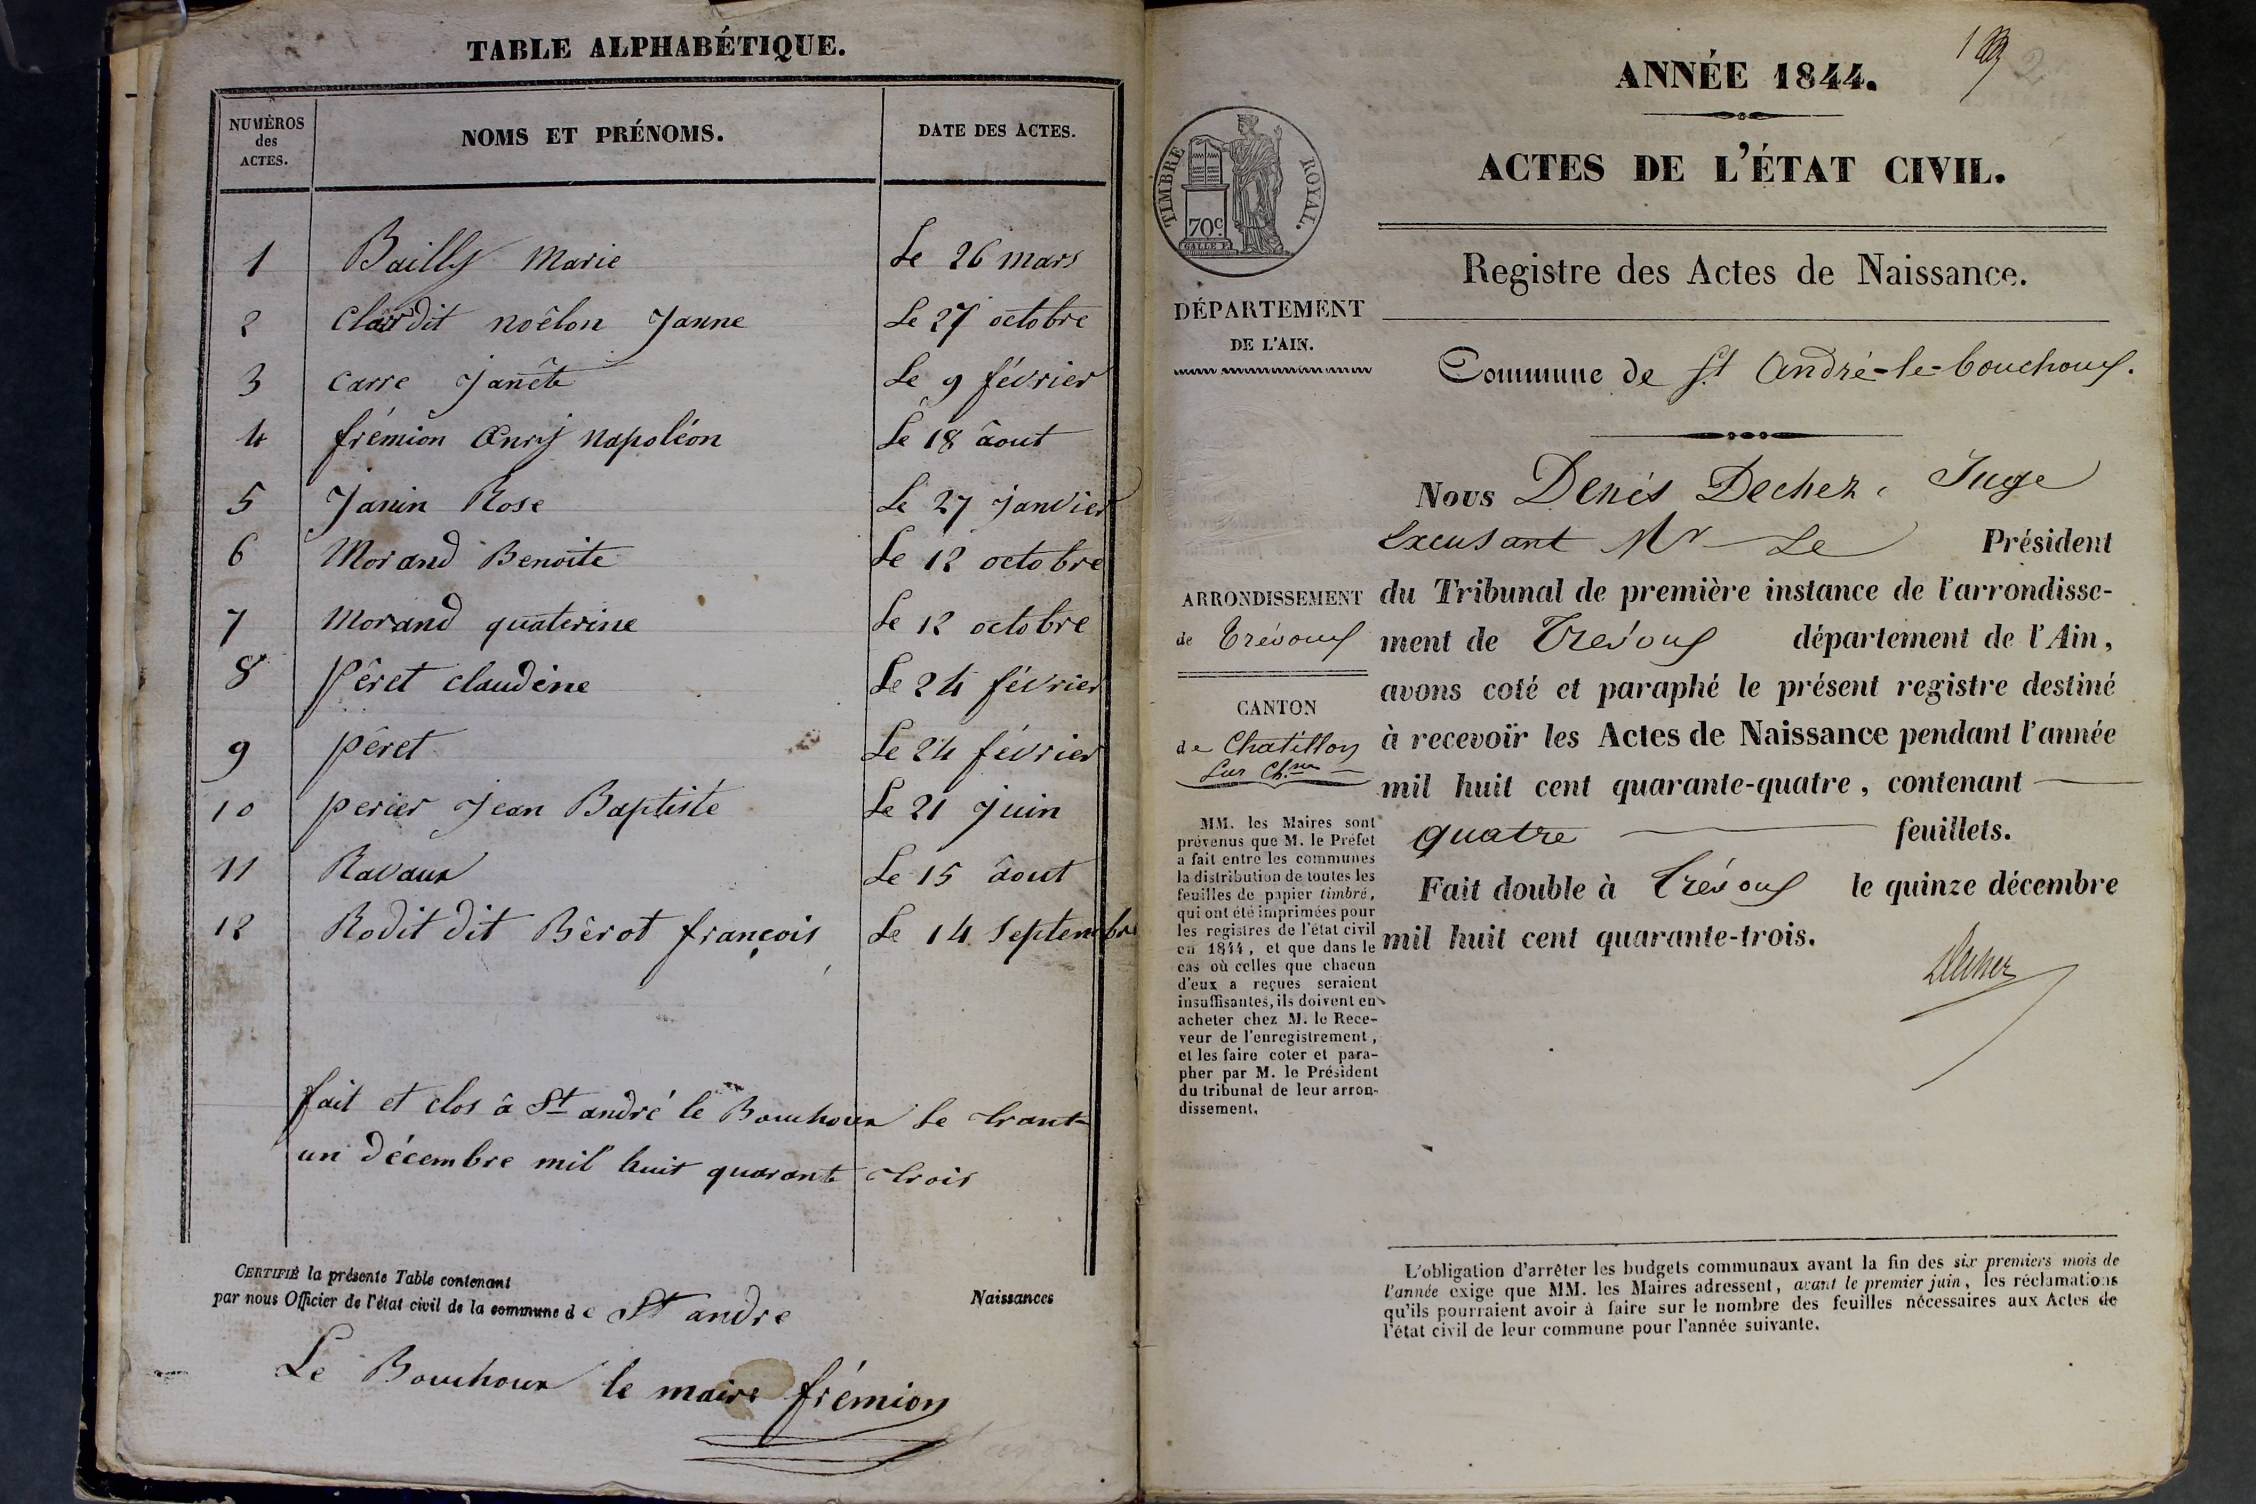 TABLE ALPHABÉTIQUE.
NUMÉROS des ACTES.
NOMS ET PRÉNOMS.
DATE DES ACTES.
1 Bailly Marie Le 26 mars
2 dit noêlon Janne Le 27 octobre
3 Carre Janête Le 9 février
4 frémion Œnry Napoléon Le 18 âout
5 Janin Rose Le 27 Janvier
6 Morand Benoite Le 12 octobre
7 Morand quaterine Le 12 octobre
8 Pêret claudine Le 24 février
9 pêret Le 24 février
10 perier Jean Baptiste Le 21 Juin
11 Ravaux Le 15 âout
12 Rodit dit Bêrot françois Le 14 Septembre
fait et clos â St andré le Bouchoux Le trante
un décembre mil huit quarante trois
CERTIFIÉ la présente Table contenant Naissances
par nous Officier de l'état civil de la commune de St andre
Le Bouchoux le maire frémion
ANNÉE 1844.
2
ACTES DE L'ÉTAT CIVIL.
TIMBRE ROYAL.
70c.
GALLE F.
Registre des Actes de Naissance.
DÉPARTEMENT
DE L'AIN.
Commune de St André-le-bouchoux.
Nous Denis Dechez, Juge
Excusant Mr Le Président
du Tribunal de première instance de l'arrondisse-
ment de Trévoux département de l'Ain,
avons coté et paraphé le présent registre destiné
à recevoir les Actes de Naissance pendant l'année
mil huit cent quarante-quatre, contenant
quatre feuillets.
Fait double à Trévoux le quinze décembre
mil huit cent quarante-trois.
Dechez
ARRONDISSEMENT
de Trévoux
CANTON
de Chatillon
Sur Ch.ne
MM. les Maires sont
prévenus que M. le Préfet
a fait entre les communes
la distribution de toutes les
feuilles de papier timbré,
qui ont été imprimées pour
les registres de l'état civil
en 1844, et que dans le
cas où celles que chacun
d'eux a reçues seraient
insuffisantes, ils doivent en
acheter chez M. le Rece-
veur de l'enregistrement,
et les faire coter et para-
pher par M. le Président
du tribunal de leur arron-
dissement.
L'obligation d'arrêter les budgets communaux avant la fin des six premiers mois de
l'année exige que MM. les Maires adressent, avant le premier juin, les réclamations
qu'ils pourraient avoir à faire sur le nombre des feuilles nécessaires aux Actes de
l'état civil de leur commune pour l'année suivante.